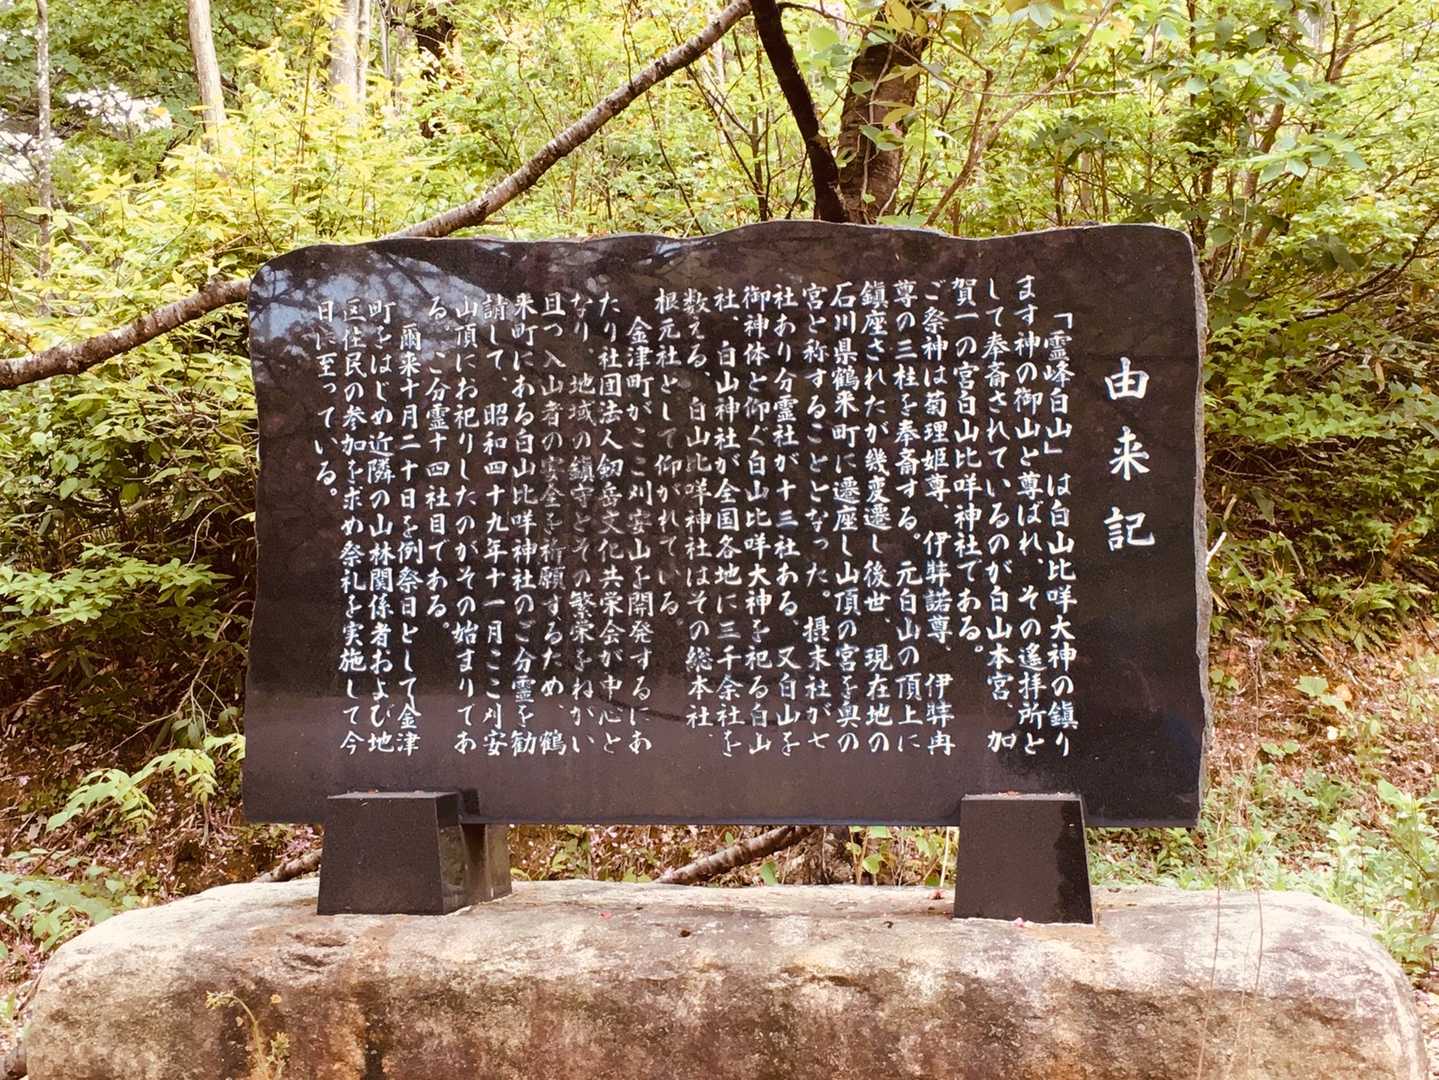 由来記
「霊峰白山」は白山比咩大神の鎮り
ます神の御山と尊ばれ、その遙拝所と
して奉斎されているのが白山本宮、加
賀一の宮白山比咩神社である。
ご祭神は菊理姫尊、伊弉諾尊、伊弉冉
尊の三柱を奉斎する。元白山の頂上に
鎮座されたが幾変遷し後世、現在地の
石川県鶴来町に遷座し山頂の宮を奥の
宮と称することとなった。摂末社が七
社あり分霊社が十三社ある、又白山を
御神体と仰ぐ白山比咩大神を祀る白山
社、白山神社が全国各地に三千余社を
数える、白山比咩神社はその総本社、
根元社として仰がれている。
金津町がここ刈安山を開発するにあ
たり社団法人剱岳文化共栄会が中心と
なり、地域の鎮守とその繁栄をねがい
且つ入山者の安全を祈願するため、鶴
来町にある白山比咩神社のご分霊を勧
請して、昭和四十九年十一月ここ刈安
山頂にお祀りしたのがその始まりであ
る。ご分霊十四社目である。
爾来十月二十日を例祭日として金津
町をはじめ近隣の山林関係者および地
区住民の参加を求め祭礼を実施して今
日に至っている。